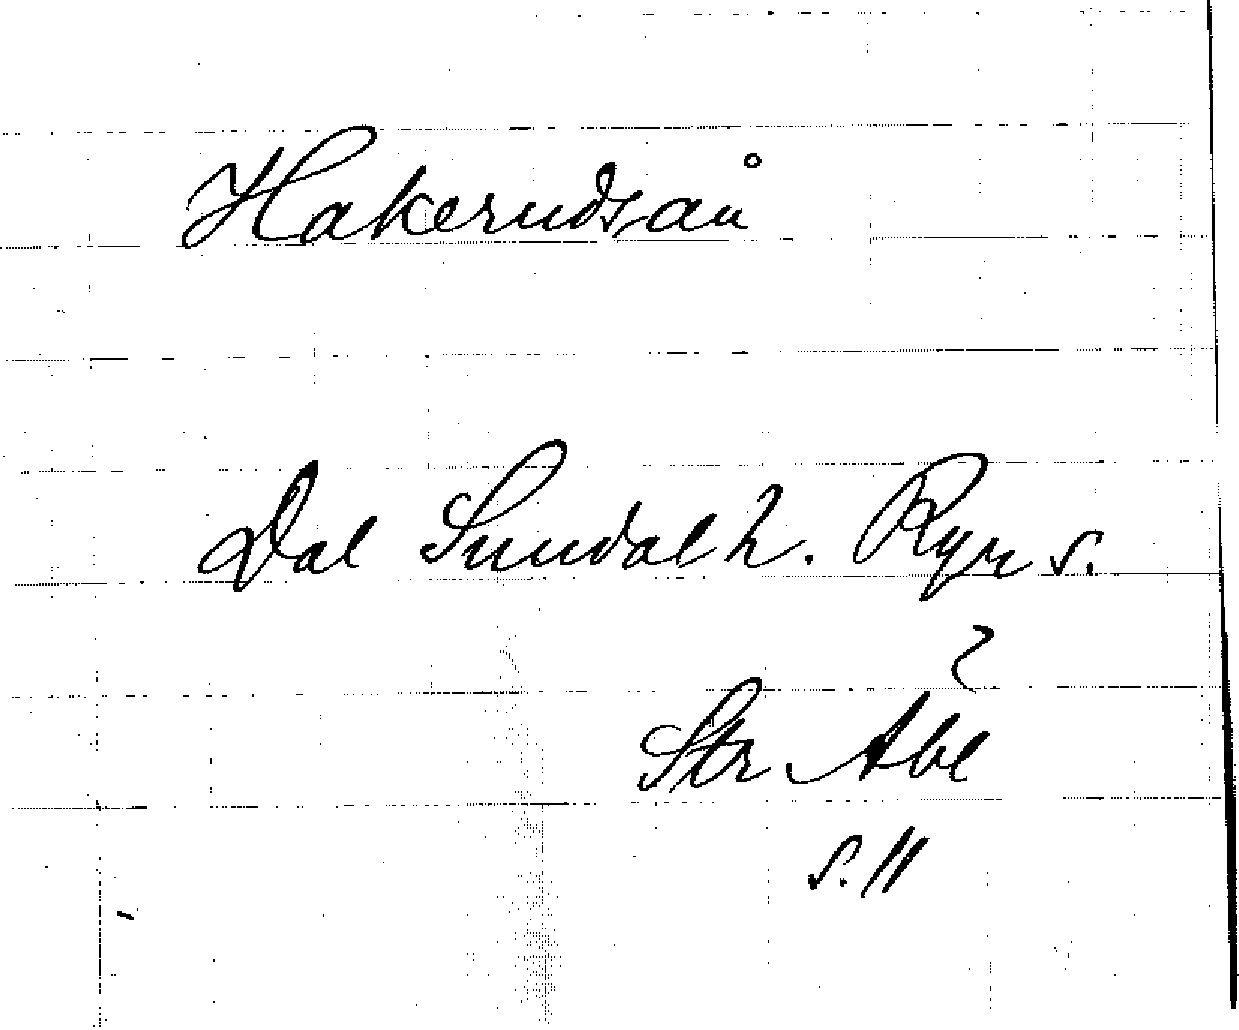 Hakerudsån
Dal Sundals h. Ryrs s.
Str Abl
s. 11